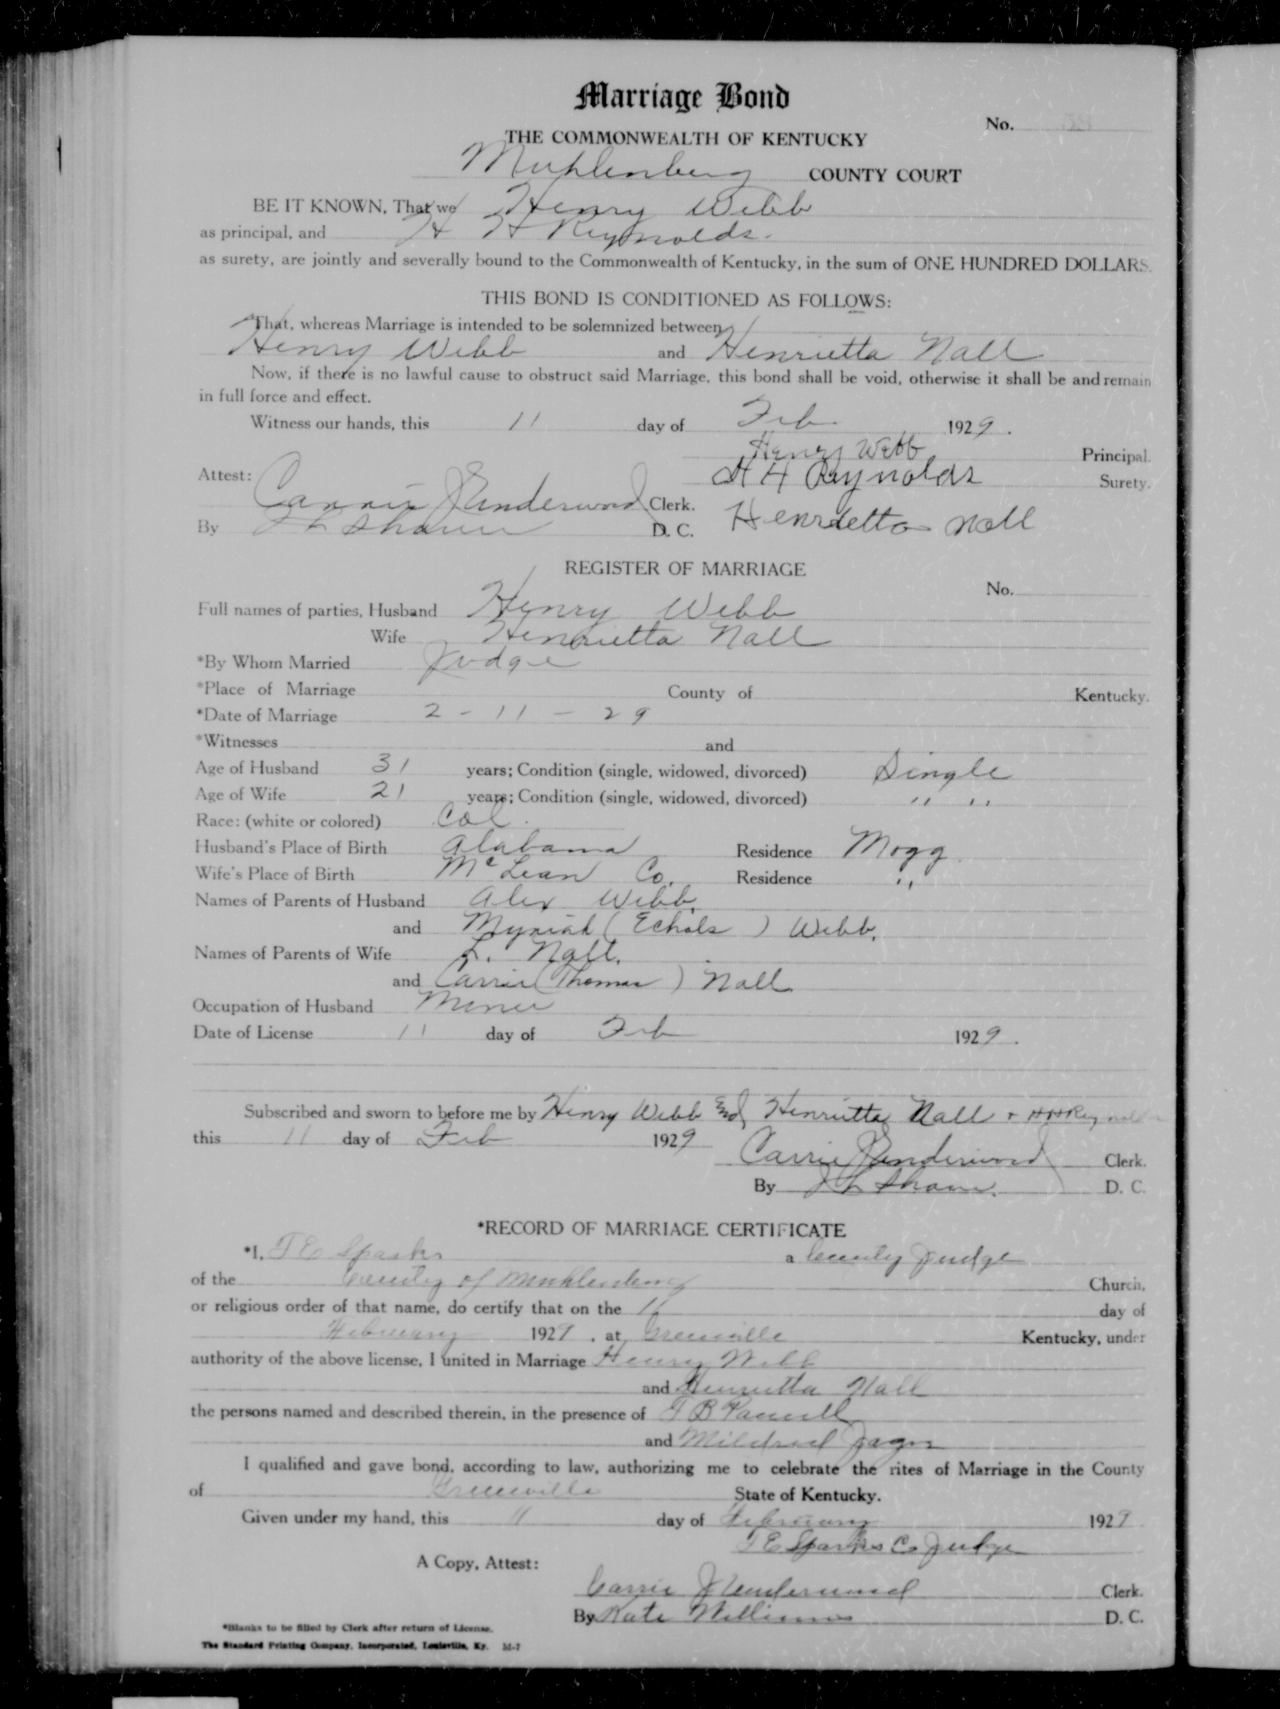 Marriage Bond
No.
THE COMMONWEALTH OF KENTUCKY
Muhlenberg COUNTY COURT
BE IT KNOWN, That we Henry Webb
as principal, and H H Reynolds.
as surety, are jointly and severally bound to the Commonwealth of Kentucky, in the sum of ONE HUNDRED DOLLARS.
THIS BOND IS CONDITIONED AS FOLLOWS:
That, whereas Marriage is intended to be solemnized between
Henry Webb and Henrietta Nall
Now, if there is no lawful cause to obstruct said Marriage, this bond shall be void, otherwise it shall be and remain
in full force and effect.
Witness our hands, this 11 day of Feb 1929.
Henry Webb Principal.
Attest: H H Reynolds Surety.
Carrie J Underwood Clerk.
By J L Shaver D. C. Henrietta Nall
REGISTER OF MARRIAGE
No.
Full names of parties, Husband Henry Webb
Wife Henrietta Nall
*By Whom Married Judge
*Place of Marriage County of Kentucky.
*Date of Marriage 2 - 11 - 29
*Witnesses and
Age of Husband 31 years; Condition (single, widowed, divorced) Single
Age of Wife 21 years; Condition (single, widowed, divorced) " "
Race: (white or colored) Col.
Husband's Place of Birth Alabama Residence Mogg.
Wife's Place of Birth McLean Co. Residence "
Names of Parents of Husband Alex Webb.
and (Echols) Webb.
Names of Parents of Wife L. Nall.
and Carrie (Thomas) Nall
Occupation of Husband Miner
Date of License 11 day of Feb 1929.
Subscribed and sworn to before me by Henry Webb and Henrietta Nall + HH Reynolds
this 11 day of Feb 1929
Carrie J Underwood Clerk.
By J L Shaver. D. C.
*RECORD OF MARRIAGE CERTIFICATE
*I, T E Sparks a County Judge
of the County of Muhlenberg Church,
or religious order of that name, do certify that on the 11 day of
February 1929, at Greenville Kentucky, under
authority of the above license, I united in Marriage Henry Webb
and Henrietta Nall
the persons named and described therein, in the presence of T B Pannell
and Mildred Jagoe
I qualified and gave bond, according to law, authorizing me to celebrate the rites of Marriage in the County
of Greenville State of Kentucky.
Given under my hand, this 11 day of February 1929
T E Sparks Co Judge
A Copy, Attest:
Carrie J Underwood Clerk.
By Kate Williams D. C.
*Blanks to be filled by Clerk after return of License.
The Standard Printing Company, Incorporated, Louisville, Ky. M-7